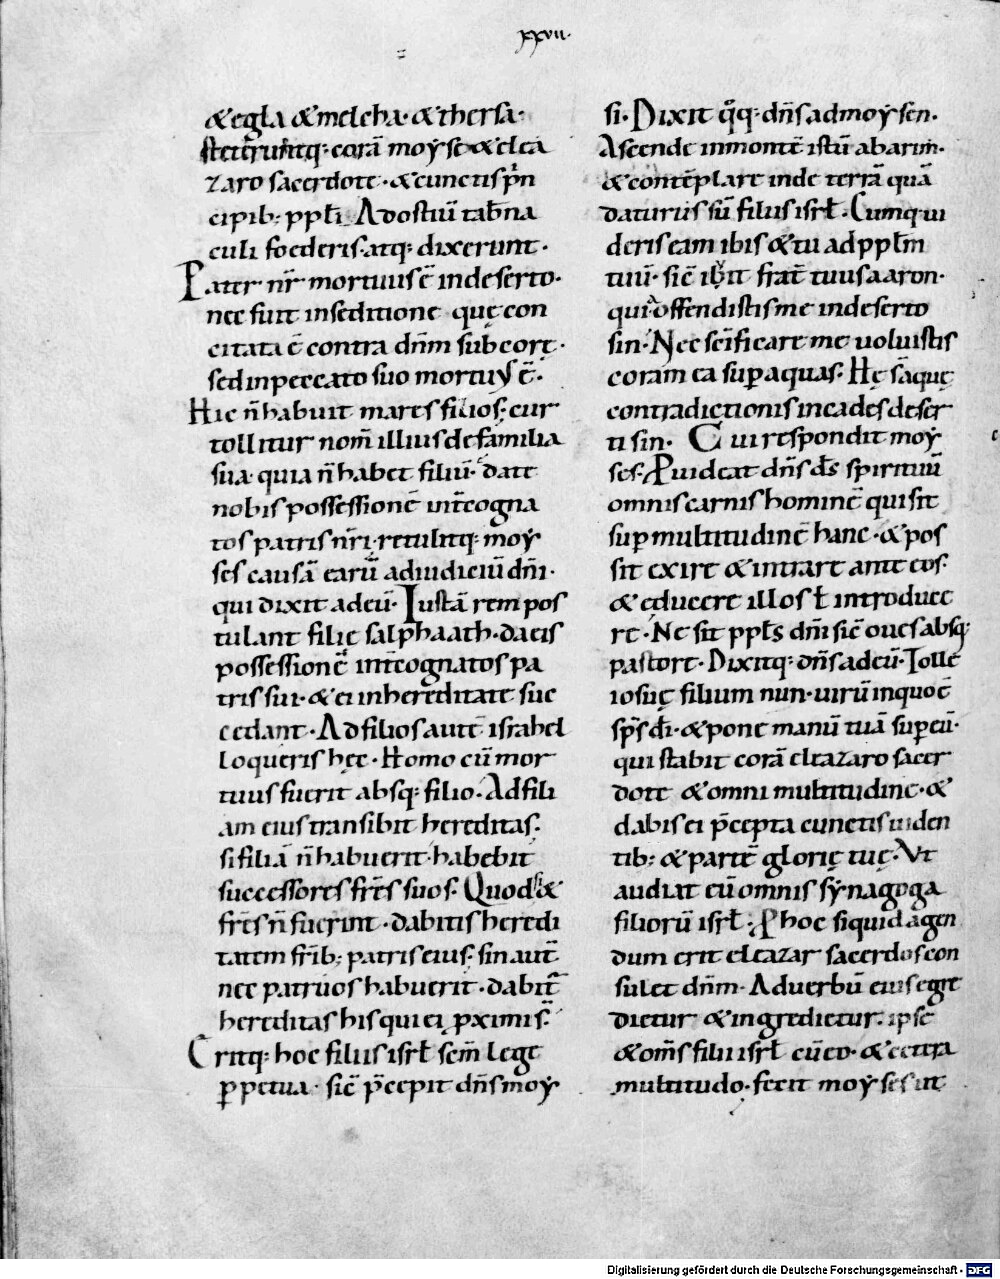 xxvii.
& egla & melcha· & thersa·
steterunt(que) corā moyse & elea
zaro sacerdote· & cunctis prin
cipib; ppl̄i Ad ostiū tab̄na
culi foederis· atq; dixerunt·
Pater nr̄ mortuus ē in deserto·
nec fuit in seditione quę con
citata ē contra dn̄m sub core·
sed in peccato suo mortuus ē·
Hic n̄ habuit mares filios; cur
tollitur nom̄ illius de familia
sua· quia n̄ habet filiū· date
nobis possessionē int̄ cogna
tos patris nr̄i· retulitq; moy
ses causā earū ad iudiciū dn̄i·
qui dixit ad eū· Iustā rem pos
tulant filię salphaath· da eis
possessionē int̄ cognatos pa
tris sui· & ei in hereditate suc
cedant· Ad filios autē israhel
loqueris hęc· Homo cū mor
tuus fuerit absq; filio· Ad fili
am eius transibit hereditas·
si filiā n̄ habuerit· habebit
successores fr̄es suos· Quod si &
fr̄es n̄ fuerint· dabitis heredi
tatem fr̄ib; patris eius· sin aut̄
nec patruos habuerit· dabit̄
hereditas his qui ei pximi s̄·
Eritq; hoc filiis isrl̄ sc̄m lege
ppetua· sic̄ p̄cepit dn̄s moy
si· Dixit q̄q; dn̄s ad moysen·
Ascende in montē istū abarim·
& contēplare inde terrā quā
daturus sū filiis isrl̄· Cumq; ui
deris eam ibis & tu ad ppl̄m
tuū· sic̄ ibit frat̄ tuus aaron·
quia offendistis me in deserto
sin· Nec sc̄ificare me uoluistis
coram ea sup aquas· Hę s̄ aquę
contradictionis in cades deser
ti sin· Cui respondit moy
ses· Puideat dn̄s ds̄ spirituū
omnis carnis hominē qui sit
sup multitudinē hanc· & pos
sit exire & intrare ante eos·
& educere illos ł introduce
re· Ne sit ppl̄s dn̄i sic̄ oues absq;
pastore· Dixitq; dn̄s ad eū· Tolle
iosuę filium nun· uirū in quo ē
sp̄s dī· & pone manū tuā sup eū·
qui stabit corā eleazaro sacer
dote & omni multitudine· &
dabis ei p̄cepta cunctis uiden
tib; & partē glorię tuę· Ut
audiat eū omnis synagoga
filiorū isrl̄· P hoc siquid agen
dum erit eleazar sacerdos con
sulet dn̄m· Ad uerbū eius egre
dietur & ingredietur· ipse
& om̄s filii isrl̄ cū eo· & cetera
multitudo· fecit moyses ut
Digitalisierung gefördert durch die Deutsche Forschungsgemeinschaft - DFG